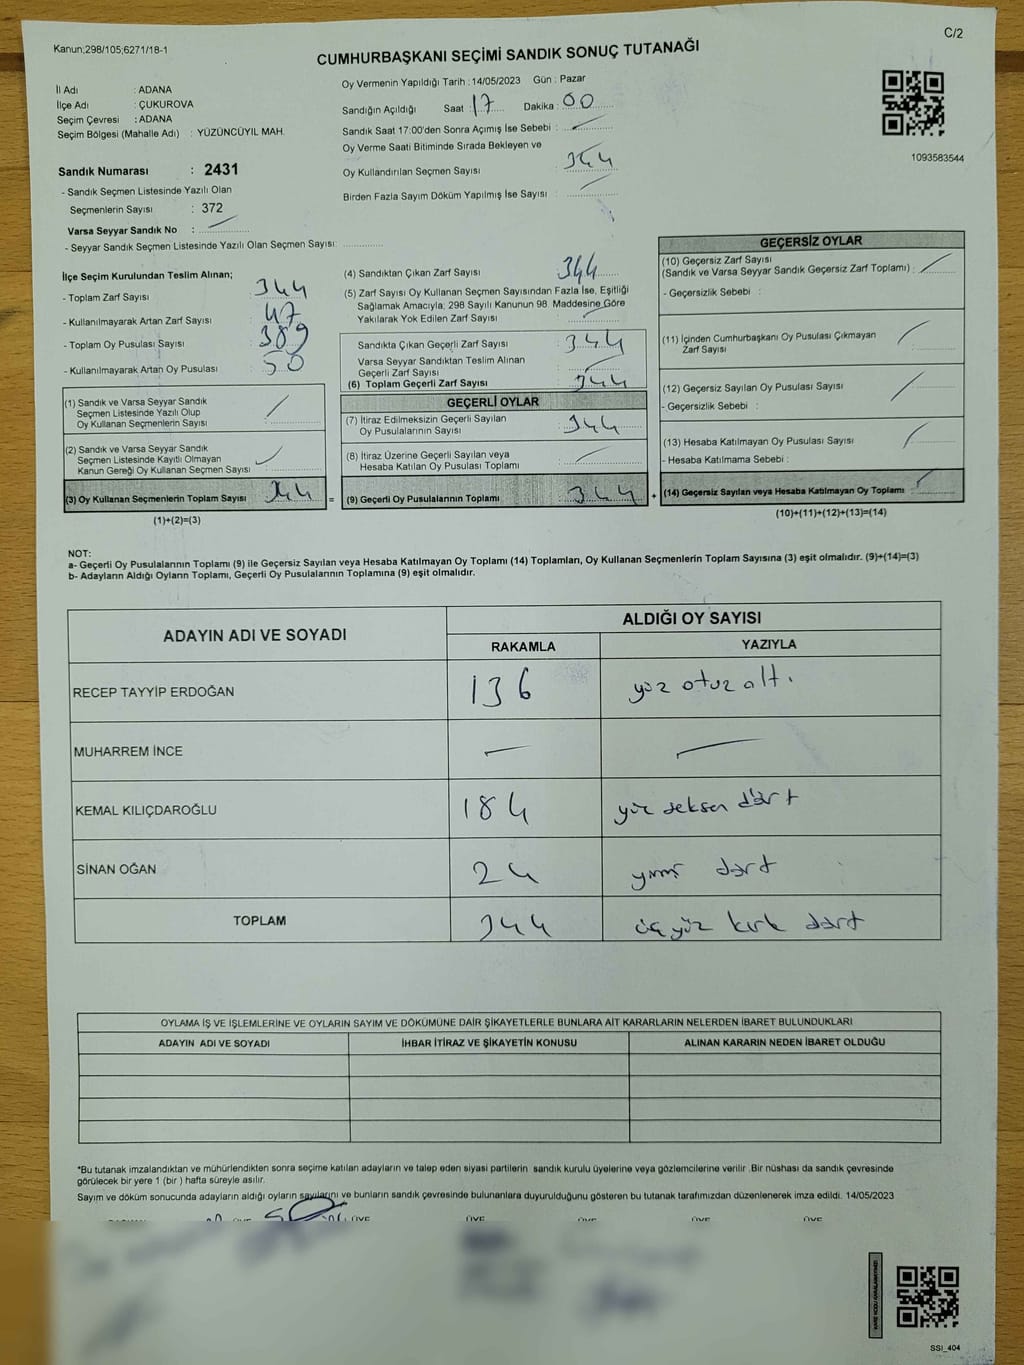 Kanun;298/105;6271/18-1
C/2
CUMHURBAŞKANI SEÇİMİ SANDIK SONUÇ TUTANAĞI
İl Adı : ADANA
İlçe Adı : ÇUKUROVA
Seçim Çevresi : ADANA
Seçim Bölgesi (Mahalle Adı) : YÜZÜNCÜYIL MAH.
Sandık Numarası : 2431
- Sandık Seçmen Listesinde Yazılı Olan
Seçmenlerin Sayısı : 372
Varsa Seyyar Sandık No :
- Seyyar Sandık Seçmen Listesinde Yazılı Olan Seçmen Sayısı:
Oy Vermenin Yapıldığı Tarih : 14/05/2023 Gün : Pazar
Sandığın Açıldığı Saat : 17 Dakika : 00
Sandık Saat 17:00'den Sonra Açımış İse Sebebi :
Oy Verme Saati Bitiminde Sırada Bekleyen ve
Oy Kullandırılan Seçmen Sayısı 344
Birden Fazla Sayım Döküm Yapılmış İse Sayısı :
1093583544
İlçe Seçim Kurulundan Teslim Alınan;
- Toplam Zarf Sayısı : 344
- Kullanılmayarak Artan Zarf Sayısı : 47
- Toplam Oy Pusulası Sayısı : 389
- Kullanılmayarak Artan Oy Pusulası : 50
(1) Sandık ve Varsa Seyyar Sandık
Seçmen Listesinde Yazılı Olup
Oy Kullanan Seçmenlerin Sayısı :
(2) Sandık ve Varsa Seyyar Sandık
Seçmen Listesinde Kayıtlı Olmayan
Kanun Gereği Oy Kullanan Seçmen Sayısı :
(3) Oy Kullanan Seçmenlerin Toplam Sayısı : 344
(1)+(2)=(3)
(4) Sandıktan Çıkan Zarf Sayısı : 344
(5) Zarf Sayısı Oy Kullanan Seçmen Sayısından Fazla İse, Eşitliği
Sağlamak Amacıyla; 298 Sayılı Kanunun 98. Maddesine Göre
Yakılarak Yok Edilen Zarf Sayısı :
Sandıkta Çıkan Geçerli Zarf Sayısı : 344
Varsa Seyyar Sandıktan Teslim Alınan
Geçerli Zarf Sayısı :
(6) Toplam Geçerli Zarf Sayısı : 344
GEÇERLİ OYLAR
(7) İtiraz Edilmeksizin Geçerli Sayılan
Oy Pusulalarının Sayısı : 344
(8) İtiraz Üzerine Geçerli Sayılan veya
Hesaba Katılan Oy Pusulası Toplamı :
= (9) Geçerli Oy Pusulalarının Toplamı : 344 +
GEÇERSİZ OYLAR
(10) Geçersiz Zarf Sayısı
(Sandık ve Varsa Seyyar Sandık Geçersiz Zarf Toplamı) :
- Geçersizlik Sebebi :
(11) İçinden Cumhurbaşkanı Oy Pusulası Çıkmayan
Zarf Sayısı :
(12) Geçersiz Sayılan Oy Pusulası Sayısı :
- Geçersizlik Sebebi :
(13) Hesaba Katılmayan Oy Pusulası Sayısı :
- Hesaba Katılmama Sebebi :
(14) Geçersiz Sayılan veya Hesaba Katılmayan Oy Toplamı :
(10)+(11)+(12)+(13)=(14)
NOT:
a- Geçerli Oy Pusulalarının Toplamı (9) ile Geçersiz Sayılan veya Hesaba Katılmayan Oy Toplamı (14) Toplamları, Oy Kullanan Seçmenlerin Toplam Sayısına (3) eşit olmalıdır. (9)+(14)=(3)
b- Adayların Aldığı Oyların Toplamı, Geçerli Oy Pusulalarının Toplamına (9) eşit olmalıdır.
ADAYIN ADI VE SOYADI
ALDIĞI OY SAYISI
RAKAMLA YAZIYLA
RECEP TAYYİP ERDOĞAN 136 yüz otuz altı
MUHARREM İNCE — —
KEMAL KILIÇDAROĞLU 184 yüz seksen dört
SİNAN OĞAN 24 yirmi dört
TOPLAM 344 üç yüz kırk dört
OYLAMA İŞ VE İŞLEMLERİNE VE OYLARIN SAYIM VE DÖKÜMÜNE DAİR ŞİKAYETLERLE BUNLARA AİT KARARLARIN NELERDEN İBARET BULUNDUKLARI
ADAYIN ADI VE SOYADI İHBAR İTİRAZ VE ŞİKAYETİN KONUSU ALINAN KARARIN NEDEN İBARET OLDUĞU
*Bu tutanak imzalandıktan ve mühürlendikten sonra seçime katılan adayların ve talep eden siyasi partilerin sandık kurulu üyelerine veya gözlemcilerine verilir .Bir nüshası da sandık çevresinde
görülecek bir yere 1 (bir ) hafta süreyle asılır.
Sayım ve döküm sonucunda adayların aldığı oyların sayılarını ve bunların sandık çevresinde bulunanlara duyurulduğunu gösteren bu tutanak tarafımızdan düzenlenerek imza edildi. 14/05/2023
ÜYE ÜYE ÜYE ÜYE ÜYE ÜYE
SSI_404